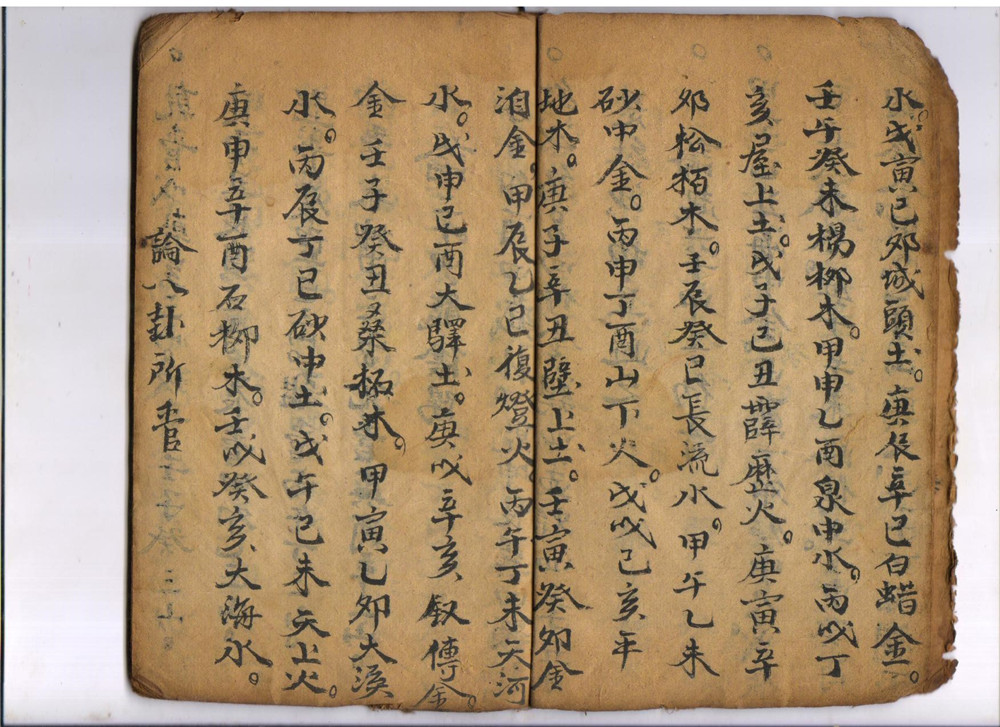 水。戊寅己卯城頭土。庚辰辛巳白蜡金。
壬午癸未楊柳木。甲申乙酉泉中水。丙戌丁
亥屋上土。戊子己丑薜歷火。庚寅辛
卯松栢木。壬辰癸巳長流水。甲午乙未
砂中金。丙申丁酉山下火。戊戌己亥年
地木。庚子辛丑壁上土。壬寅癸卯金
泊金。甲辰乙巳復燈火。丙午丁未天河
水。戊申己酉大驛土。庚戌辛亥釵傳金。
金壬子癸丑桑柘木。甲寅乙卯大溪
水。丙辰丁巳砂中土。戊午己未天上火。
庚申辛酉石柳木。壬戌癸亥大海水。
論八卦所管